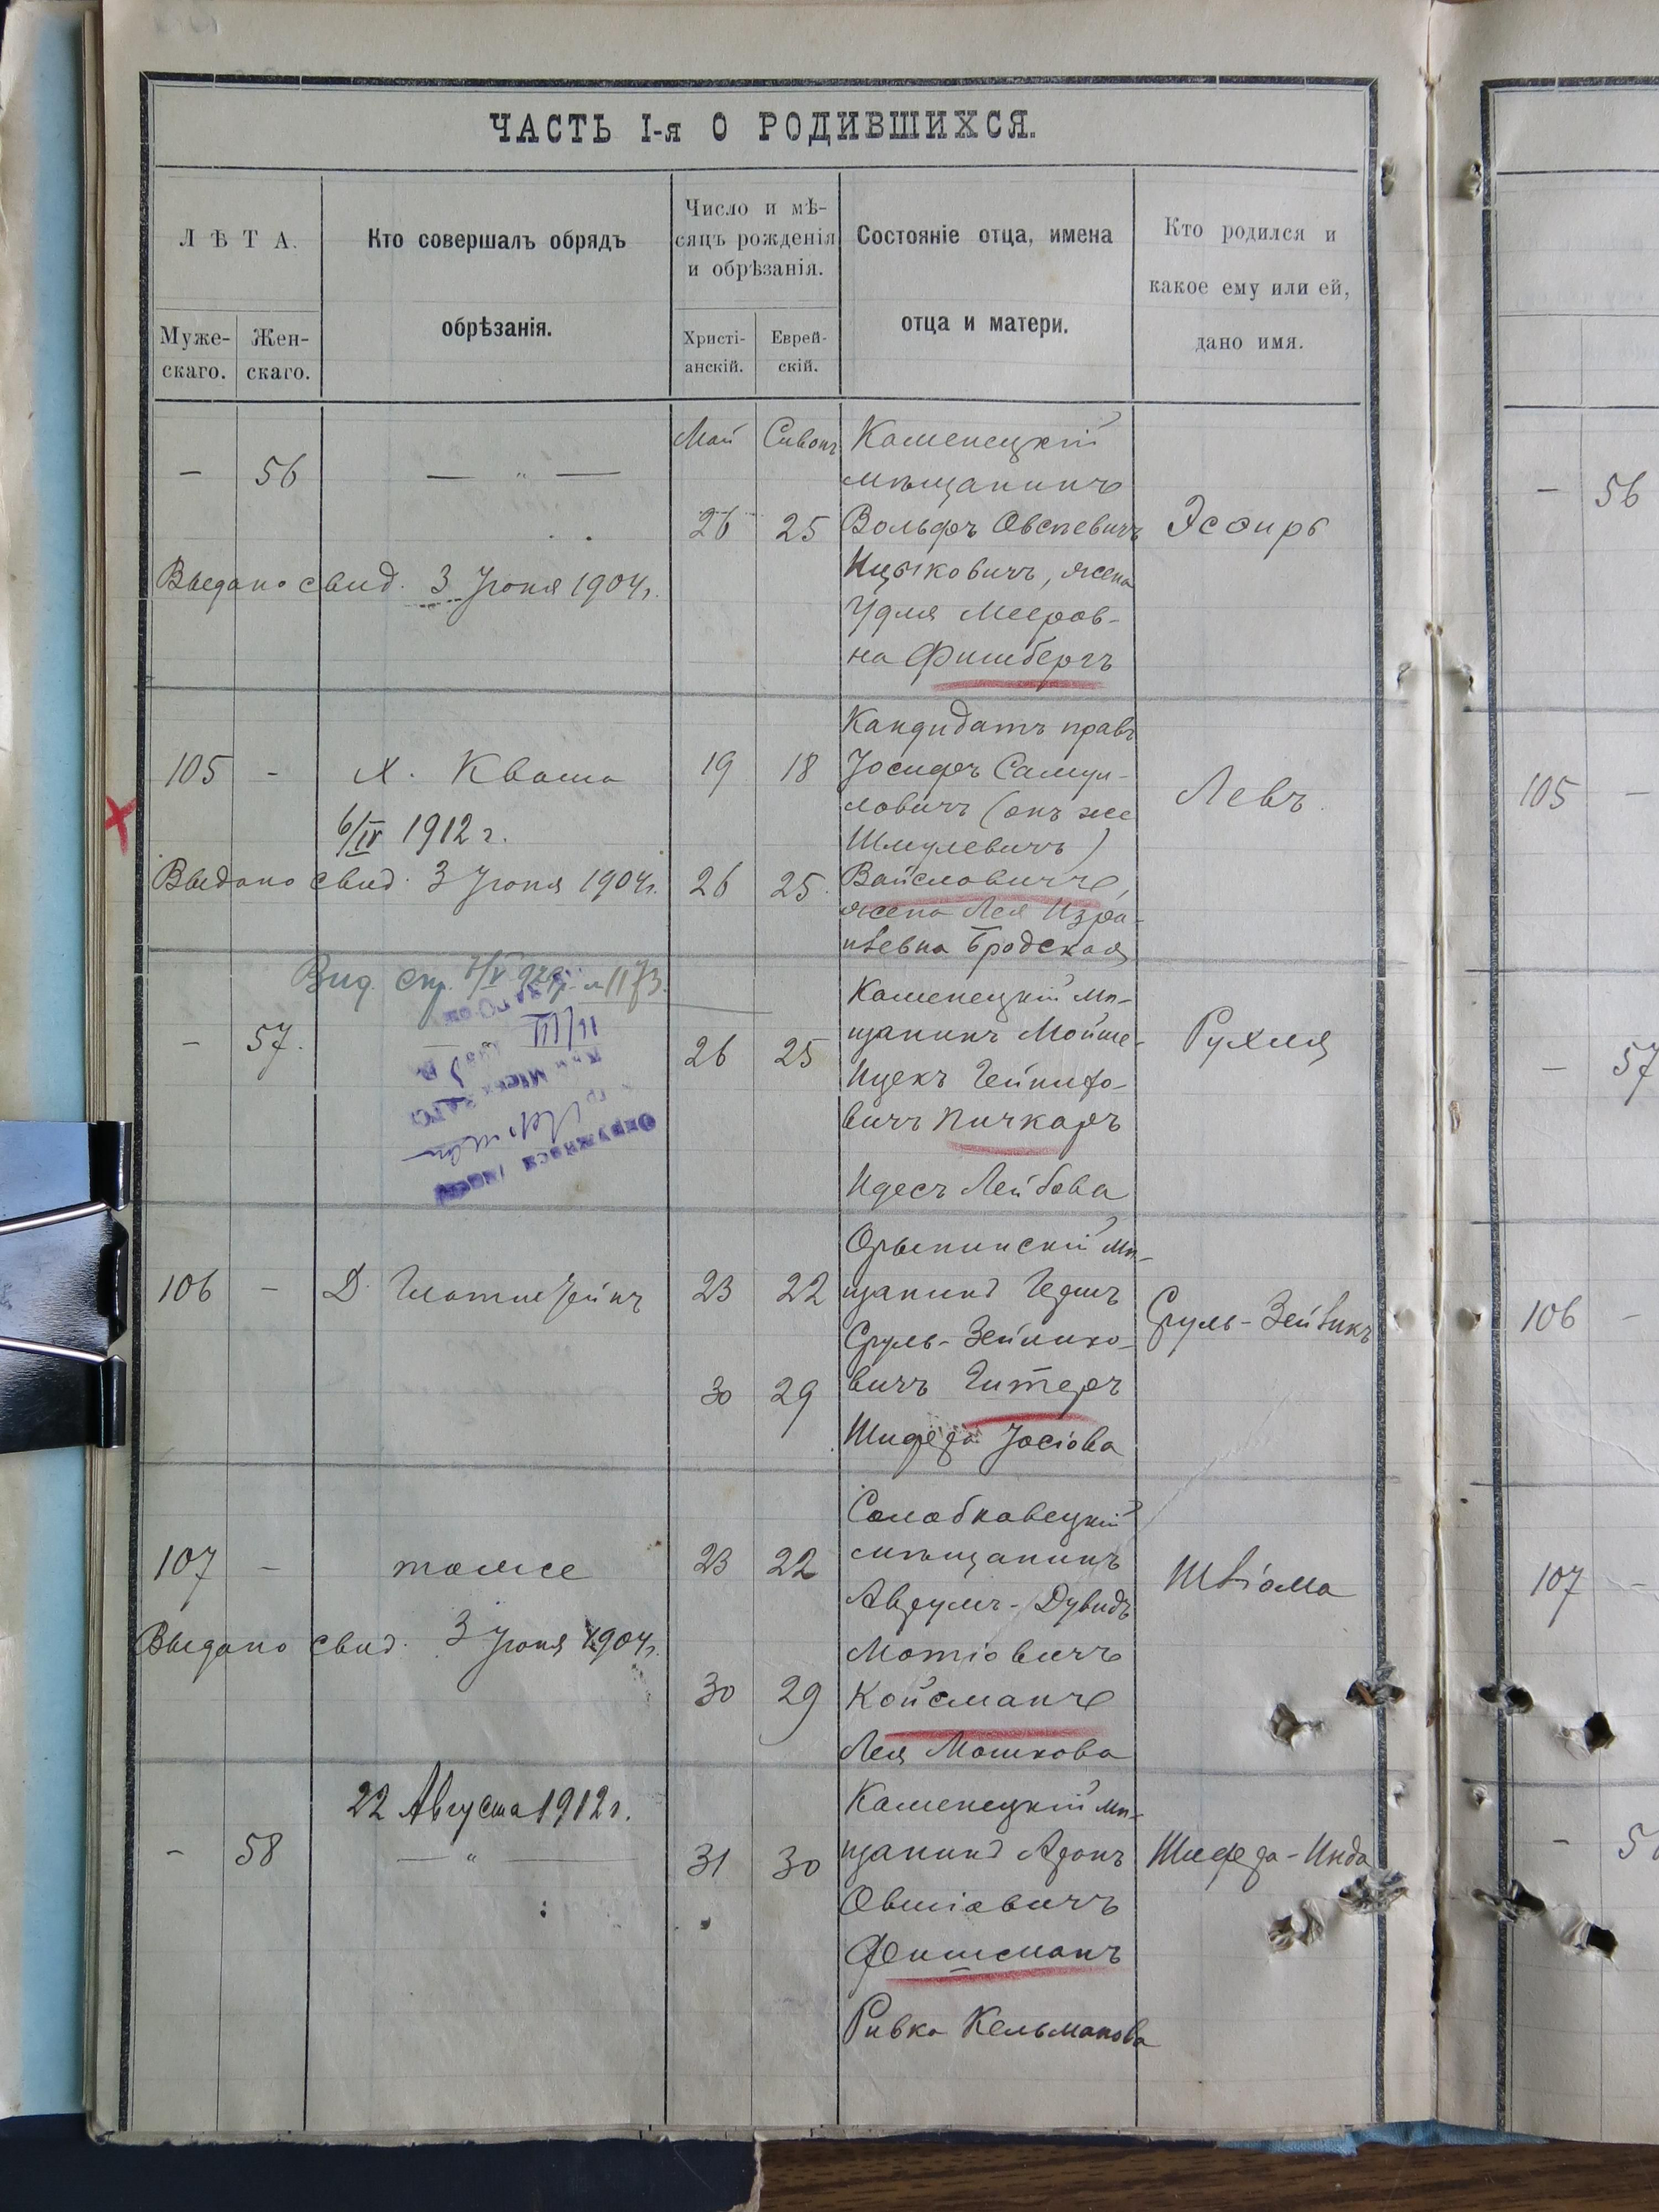 ЧАСТЬ I-я О РОДИВШИХСЯ.
ЛѢТА.
Муже-
скаго.
Жен-
скаго.
Кто совершалъ обрядъ
обрѣзанія.
Число и мѣ-
сяцъ рожденія
и обрѣзанія.
Христі-
анскій.
Еврей-
скій.
Состояніе отца, имена
отца и матери.
Кто родился и
какое ему или ей,
дано имя.
Май Сивонъ
— 56 — „ —
26 25
Каменецкій
мѣщанинъ
Вольфъ Овсеевичъ
Ицьковичъ, жена
Удля Мееров-
на Фишбергъ
Эсѳирь
Выдано свид. 3 Іюня 1904г.
105 - Х. Кваша 19 18
6/IV 1912 г.
Выдано свид. 3 Іюня 1904г. 26 25.
Кандидатъ правъ
Іосифъ Самуи-
ловичъ (онъ же
Шмулевичъ)
Вайсловичъ,
жена Лея Изра-
илевна Бродская
Левъ.
Вид. Спр.
№ 1173.
- 57. 26 25
III/11
Каменецкій мѣ-
щанинъ Мойше-
Ицекъ
вичъ Пичкаръ
Идесъ Лейбова
Рухля
106 - Д. 23 22
30 29
мѣ-
щанинъ Гершъ
Сруль-Зейлико-
вичъ Гитеръ
Шифра Іосіова
Сруль-Зейвикъ
107 - тоже 23 22
Выдано свид. 3 Іюня 1904г.
30 29
Солобковецкій
мѣщанинъ
Аврумъ-Дувидъ
Мотіовичъ
Койсманъ
Лея Мошкова
Швіома
22 Августа 1912г.
- 58 — „ — 31 30
Каменецкій мѣ-
щанинъ Аронъ
Овшіовичъ
Фишманъ
Ривка Кельманова
Шифра-Инда
56
105 —
— 57
106 -
107 -
-